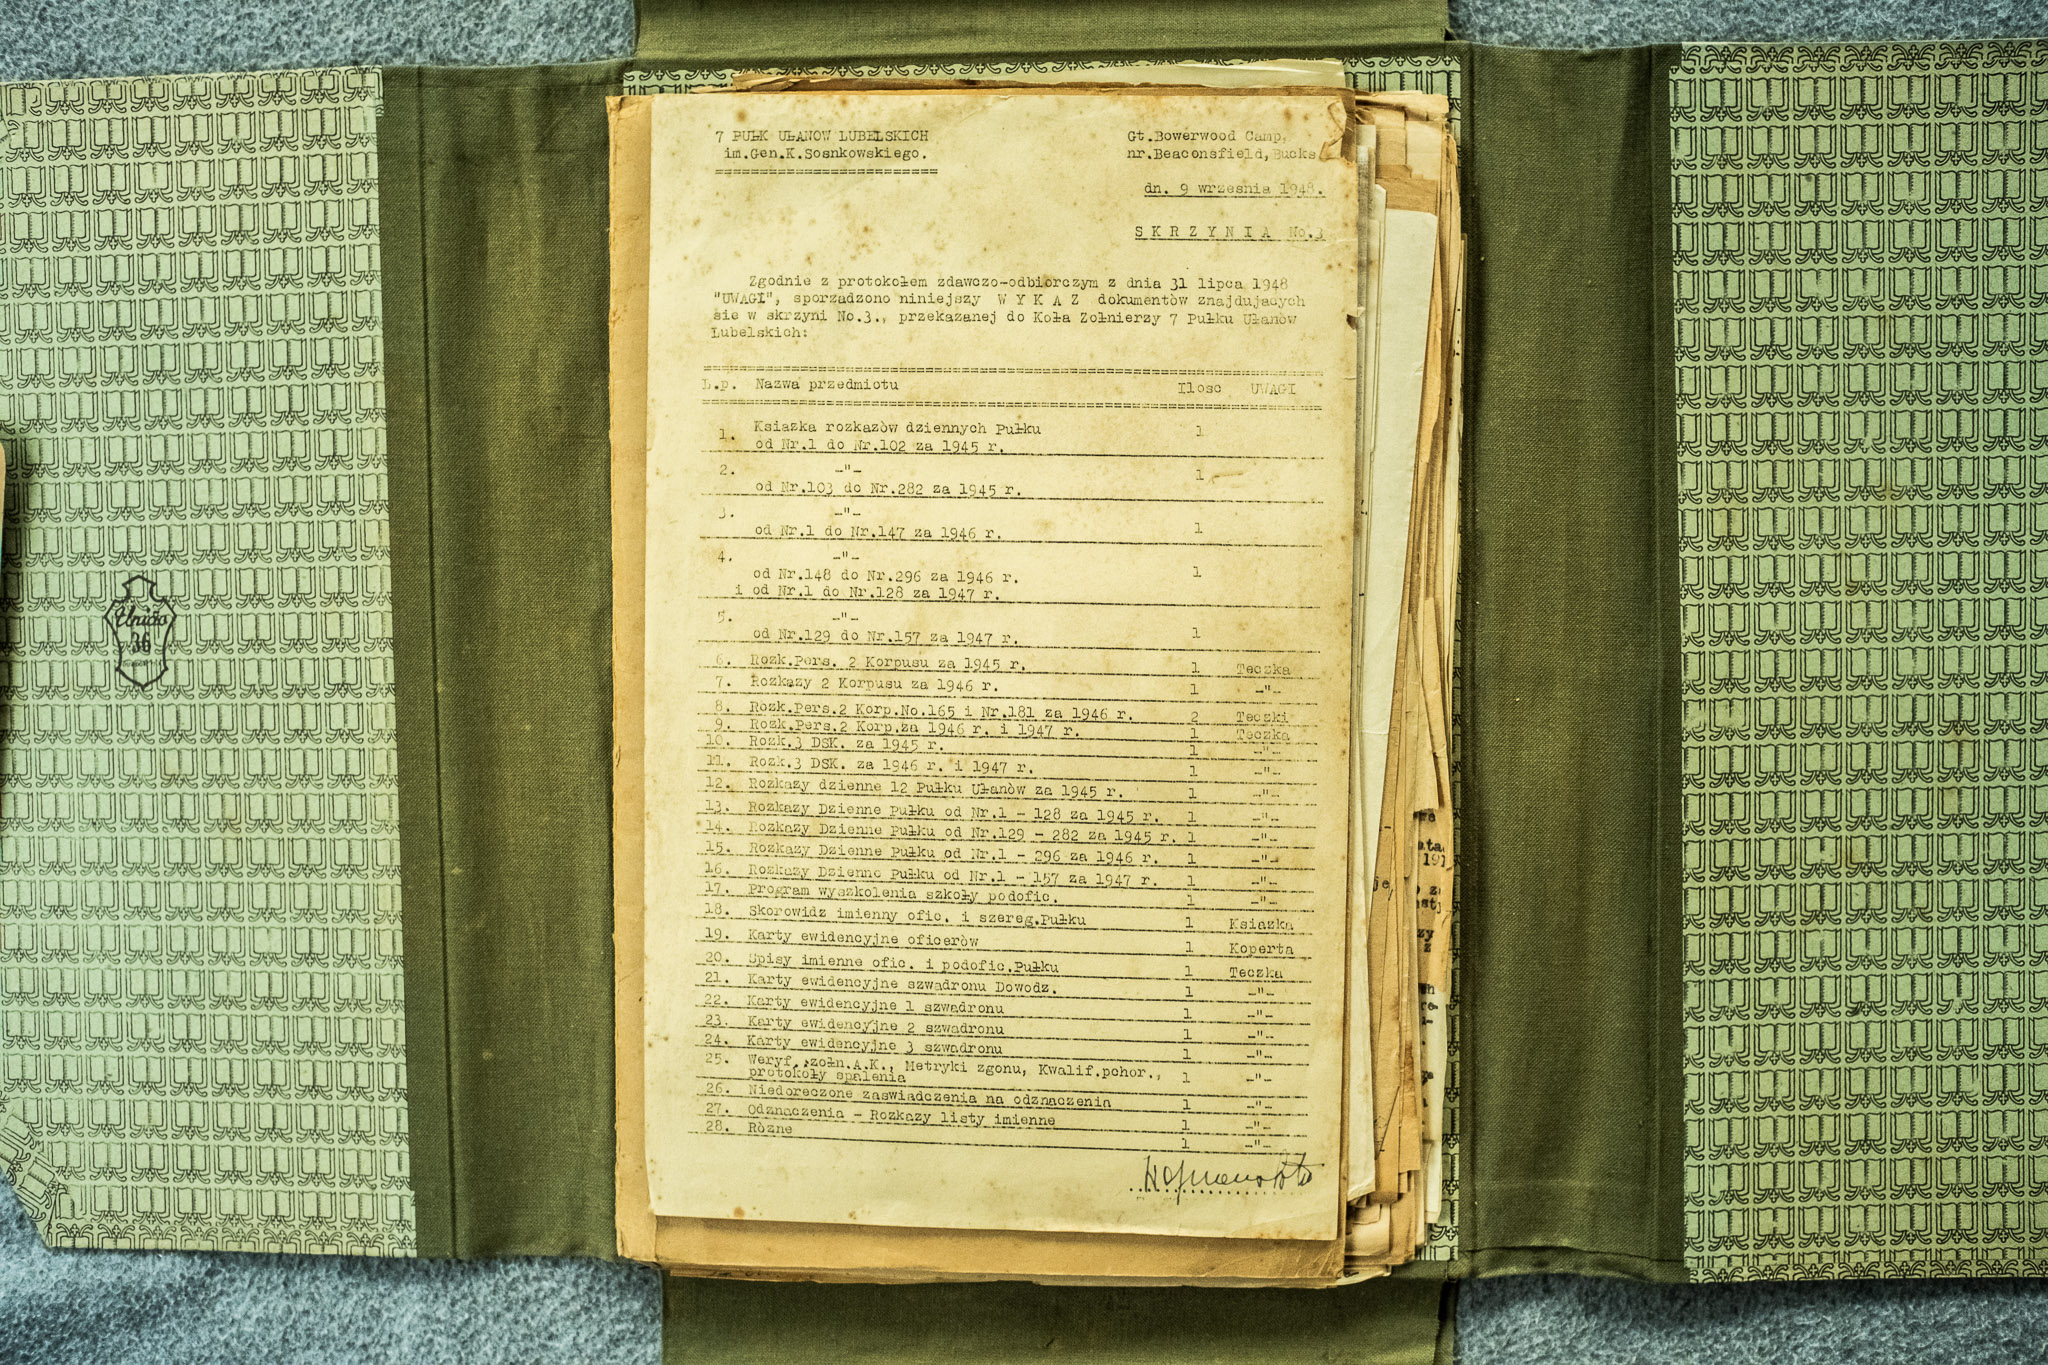 7 PUŁK UŁANOW LUBELSKICH
im.Gen.K.Sosnkowskiego.
Gt.Bowerwood Camp,
nr.Beaconsfield,Bucks.
dn. 9 września 1948.
S K R Z Y N I A No.3
Zgodnie z protokołem zdawczo-odbiorczym z dnia 31 lipca 1948
"UWAGI", sporzadzono niniejszy W Y K A Z dokumentòw znajdujacych
sie w skrzyni No.3., przekazanej do Koła Zołnierzy 7 Pułku Ułanòw
Lubelskich:
L.p. Nazwa przedmiotu Ilosc UWAGI
1. Ksiazka rozkazòw dziennych Pułku 1
od Nr.1 do Nr.102 za 1945 r.
2. -"- 1
od Nr.103 do Nr.282 za 1945 r.
3. -"-
od Nr.1 do Nr.147 za 1946 r. 1
4. -"-
od Nr.148 do Nr.296 za 1946 r. 1
i od Nr.1 do Nr.128 za 1947 r.
5. -"-
od Nr.129 do Nr.157 za 1947 r. 1
6. Rozk.Pers. 2 Korpusu za 1945 r. 1 Teczka
7. Rozkazy 2 Korpusu za 1946 r. 1 -"-
8. Rozk.Pers.2 Korp.No.165 i Nr.181 za 1946 r. 2 Teczki
9. Rozk.Pers.2 Korp.za 1946 r. i 1947 r. 1 Teczka
10. Rozk.3 DSK. za 1945 r. 1 -"-
11. Rozk.3 DSK. za 1946 r. i 1947 r. 1 -"-
12. Rozkazy dzienne 12 Pułku Ułanòw za 1945 r. 1 -"-
13. Rozkazy Dzienne Pułku od Nr.1 - 128 za 1945 r. 1 -"-
14. Rozkazy Dzienne Pułku od Nr.129 - 282 za 1945 r. 1 -"-
15. Rozkazy Dzienne Pułku od Nr.1 - 296 za 1946 r. 1 -"-
16. Rozkazy Dzienne Pułku od Nr.1 - 157 za 1947 r. 1 -"-
17. Program wyszkolenia szkoły podofic. 1 -"-
18. Skorowidz imienny ofic. i szereg.Pułku 1 Ksiazka
19. Karty ewidencyjne oficeròw 1 Koperta
20. Spisy imienne ofic. i podofic.Pułku 1 Teczka
21. Karty ewidencyjne szwadronu Dowodz. 1 -"-
22. Karty ewidencyjne 1 szwadronu 1 -"-
23. Karty ewidencyjne 2 szwadronu 1 -"-
24. Karty ewidencyjne 3 szwadronu 1 -"-
25. Weryf. zołn.A.K., Metryki zgonu, Kwalif.pchor., 1 -"-
protokoły spalenia
26. Niedoreczone zaswiadczenia na odznaczenia 1 -"-
27. Odznaczenia - Rozkazy listy imienne 1 -"-
28. Ròzne 1 -"-
Unida
36